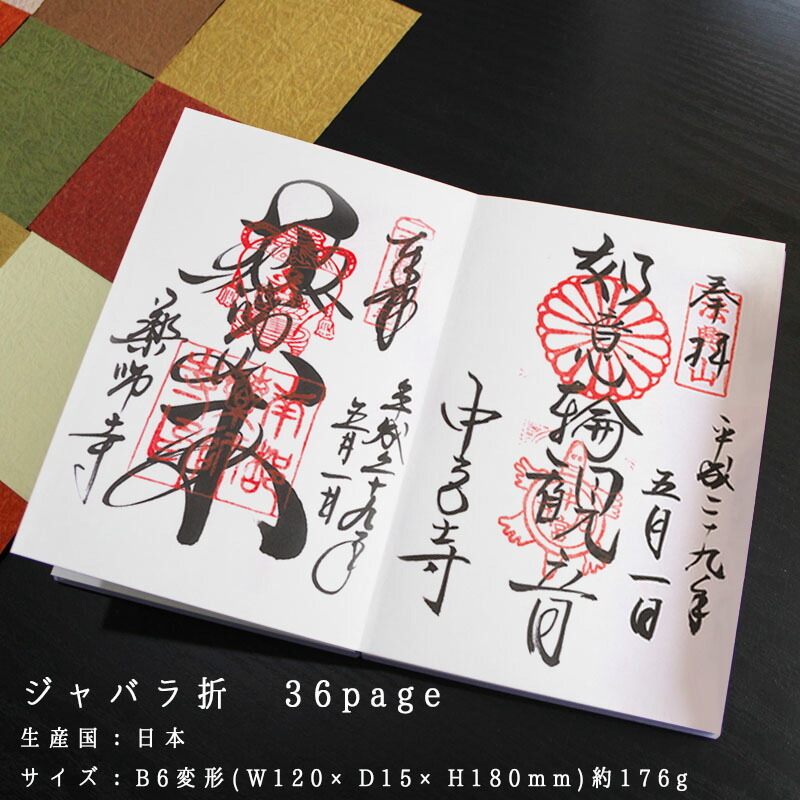 奉拝
平成二十九年
五月一日
如意輪観音
中宮寺
奉拝
平成二十九年
五月一日
薬師寺
ジャバラ折 36page
生産国:日本
サイズ:B6変形(W120× D15× H180mm)約176g